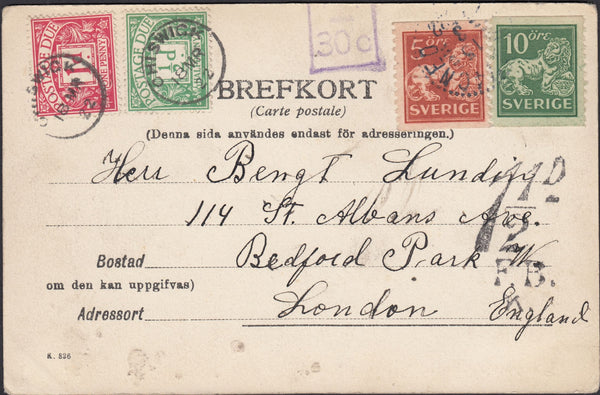 POSTAGE DUE
1D
ONE PENNY
POSTAGE DUE
CHISWICK
MR
22
CHISWICK
MR
22
30 c
5 ÖRE
SVERIGE
10 ÖRE
SVERIGE
BREFKORT
(Carte postale)
(Denna sida användes endast för adresseringen.)
Herr Bengt
114 St. Albans Ave.
Bedford Park W
Bostad
om den kan uppgifvas)
Adressort
London England
1½D
F.B.
K. 826